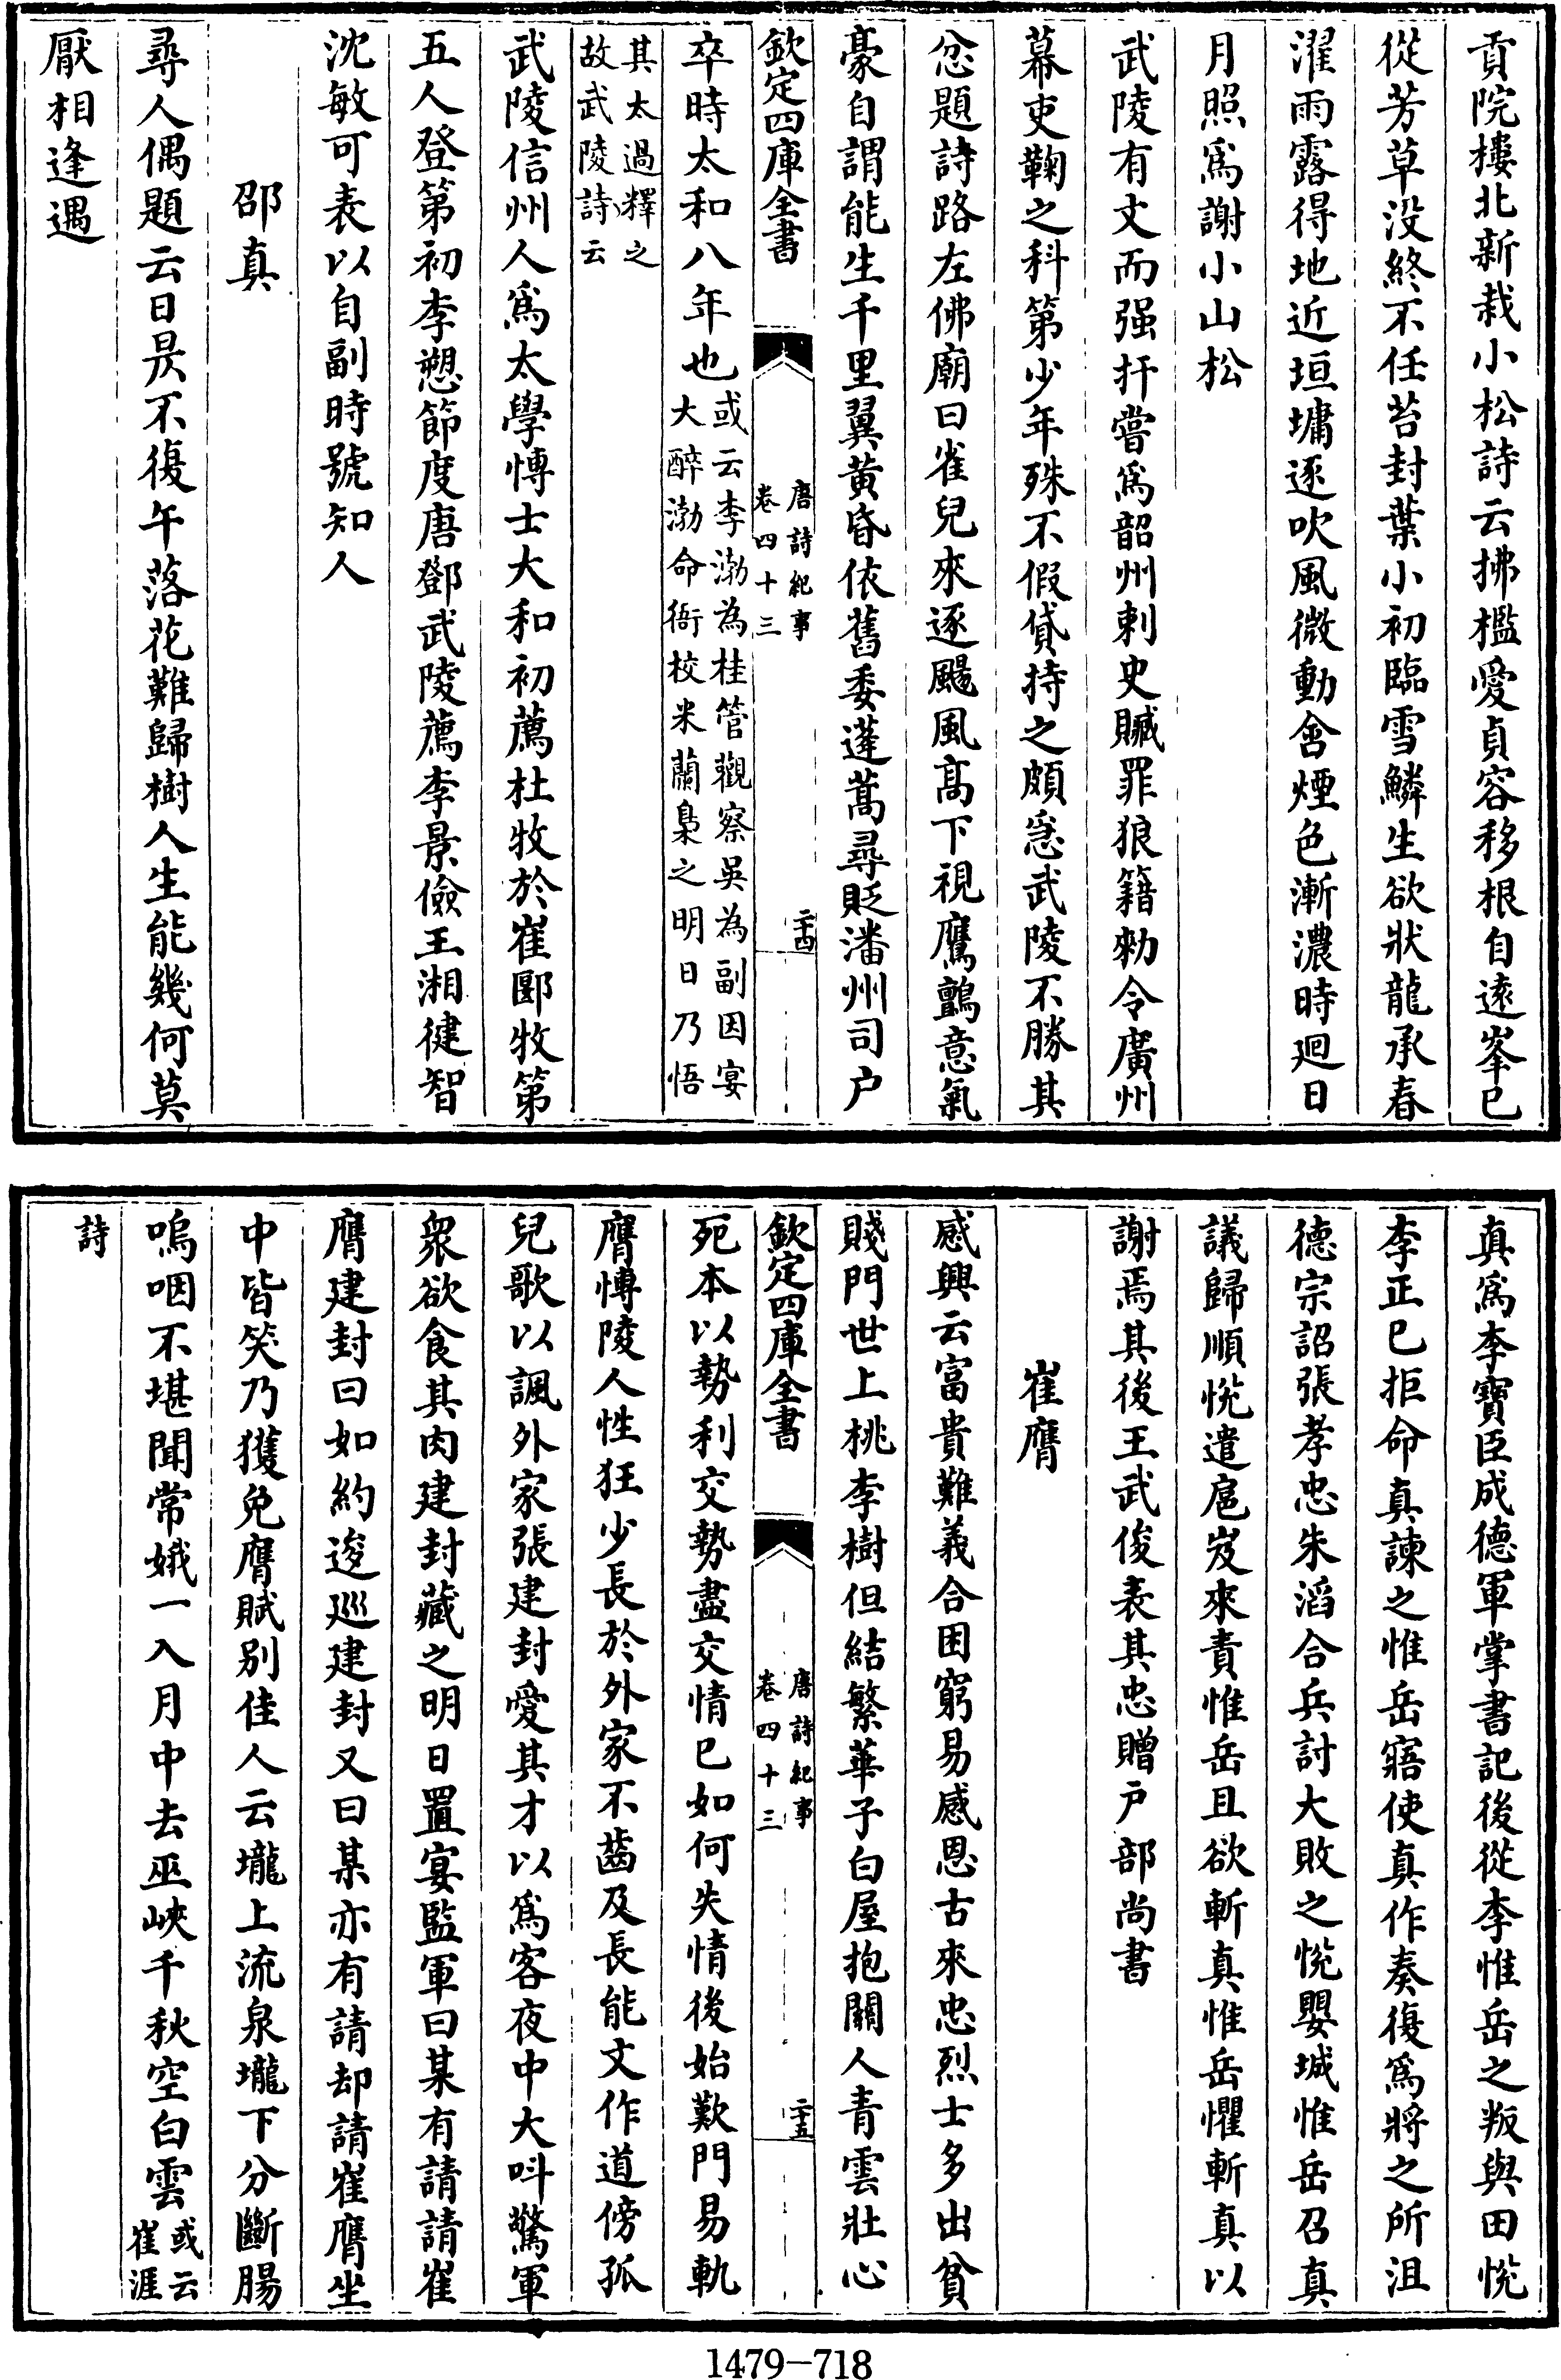 貢院樓北新栽小松詩云拂檻愛貞容移根自遠峯已
從芳草没終不任苔封葉小初臨雪鱗生欲狀龍承春
濯雨露得地近垣墉逐吹風微動含煙色漸濃時迴日
月照爲謝小山松
武陵有文而强扞嘗爲韶州刺史贓罪狼籍勑令廣州
幕吏鞠之科第少年殊不假貸持之頗急武陵不勝其
忿題詩路左佛廟曰雀兒來逐颺風高下視鷹鸇意氣
豪自謂能生千里翼黄昏依舊委蓬蒿尋貶潘州司户
欽定四庫全書
唐詩紀事
卷四十三
二十四
卒時太和八年也或云李渤為桂管觀察吳為副因宴
大醉渤命衙校米蘭梟之明日乃悟
其太過釋之
故武陵詩云
武陵信州人爲太學博士大和初薦杜牧於崔郾牧第
五人登第初李愬節度唐鄧武陵薦李景儉王湘徤智
沈敏可表以自副時號知人
邵真
尋人偶題云日昃不復午落花難歸樹人生能幾何莫
厭相逢遇
真爲李寶臣成德軍掌書記後從李惟岳之叛與田悅
李正已拒命真諫之惟岳寤使真作奏復爲將之所沮
德宗詔張孝忠朱滔合兵討大敗之悅嬰城惟岳召真
議歸順悅遣扈岌來責惟岳且欲斬真惟岳懼斬真以
謝焉其後王武俊表其忠贈户部尚書
崔膺
感興云富貴難義合困窮易感恩古來忠烈士多出貧
賤門世上桃李樹但結繁華子白屋抱關人青雲壯心
欽定四庫全書
唐詩紀事
卷四十三
二十五
死本以勢利交勢盡交情已如何失情後始歎門易軌
膺博陵人性狂少長於外家不齒及長能文作道傍孤
兒歌以諷外家張建封愛其才以爲客夜中大呌驚軍
衆欲食其肉建封藏之明日置宴監軍曰某有請請崔
膺建封曰如約逡巡建封又曰某亦有請却請崔膺坐
中皆笑乃獲免膺賦别佳人云壠上流泉壠下分斷腸
嗚咽不堪聞常娥一入月中去巫峽千秋空白雲或云
崔涯
詩
1479-718